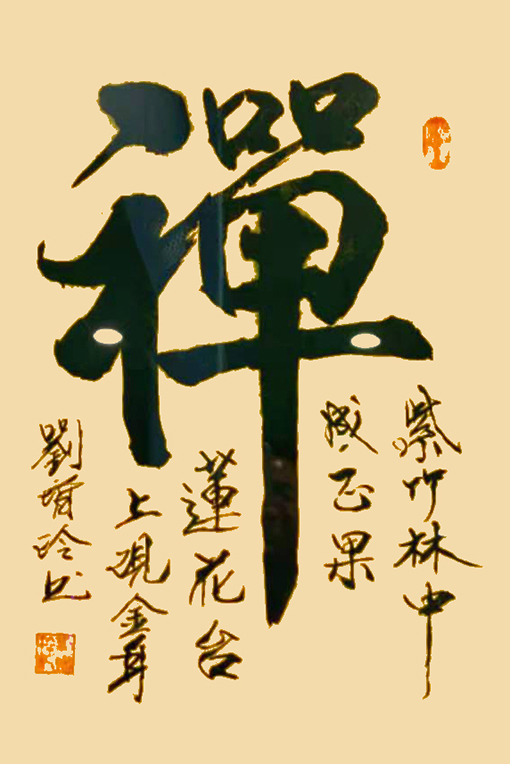 禪
紫竹林中
成正果
蓮花台
上現金身
劉增玲书